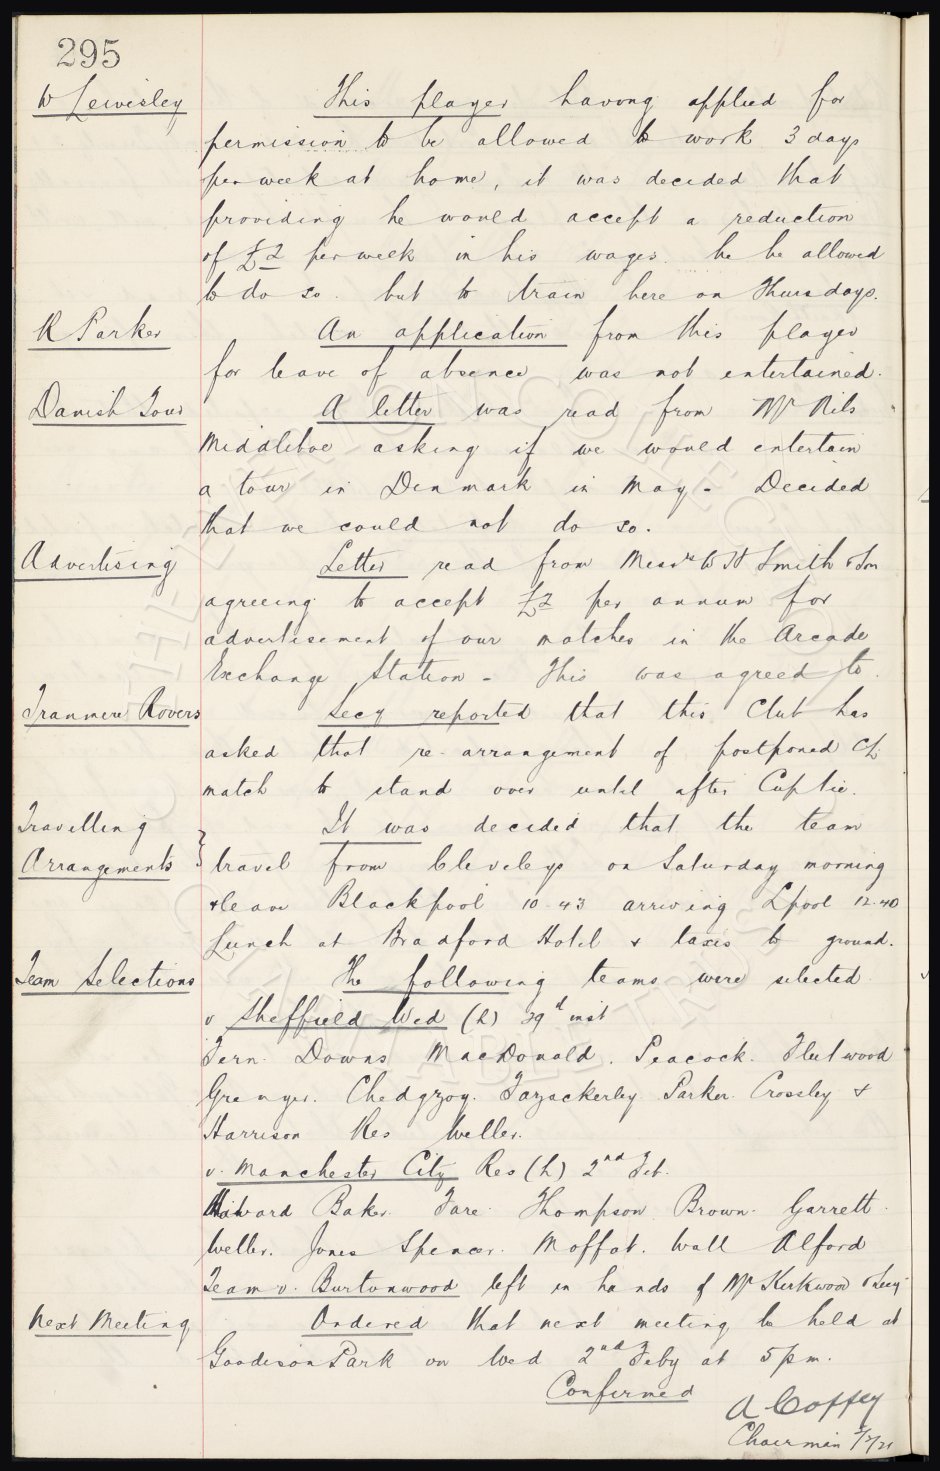 295
W Lewisley This player having applied for
permission to be allowed to work 3 days
per week at home, it was decided that
providing he would accept a reduction
of £2 per week in his wages. he be allowed
to do so. but to train here on Thursdays.
R Parker An application from this player
for leave of absence was not entertained.
Danish Tour A letter was read from Mr Nils
Middleboe asking if we would entertain
a tour in Denmark in May - Decided
that we could not do so.
Advertising Letter read from Messrs W H Smith & Son
agreeing to accept £2 per annum for
advertisement of our matches in the Arcade
Exchange Station - This was agreed to.
Tranmere Rovers Secy reported that this Club has
asked that re-arrangement of postponed CL
match to stand over until after Cup tie.
Travelling It was decided that the team
Arrangements } travel from Cleveleys on Saturday morning
& leave Blackpool 10-43 arriving Lpool 12-40
Lunch at Bradford Hotel & taxis to ground.
Team Selections The following teams were selected
v Sheffield Wed (h) 29th inst
Fern. Downs MacDonald. Peacock. Fleetwood
Grenyer. Chedgzoy. Fazackerley Parker. Crossley &
Harrison Res Weller.
v. Manchester City Res (h) 2nd Feb.
Howard Baker. Fare. Thompson Brown. Garrett.
Weller. Jones Spencer. Moffat. Wall Alford
Team v. Burtonwood left in hands of Mr Kirkwood & Secy
Next Meeting Ordered that next meeting be held at
Goodison Park on Wed 2nd Feby at 5 p m.
Confirmed
A Coffey
Chairman 2/2/21